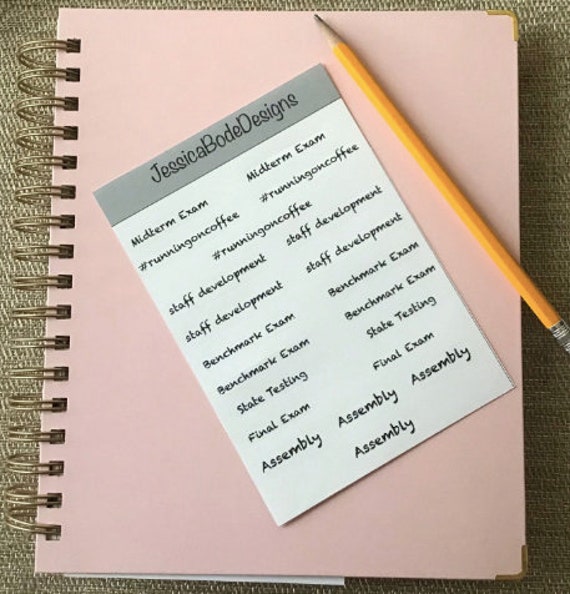 JessicaBodeDesigns
Midterm Exam Midterm Exam
#runningoncoffee #runningoncoffee
#runningoncoffee
staff development staff development
staff development staff development
Benchmark Exam Benchmark Exam
Benchmark Exam Benchmark Exam
State Testing State Testing
Final Exam Final Exam
Assembly Assembly Assembly
Assembly